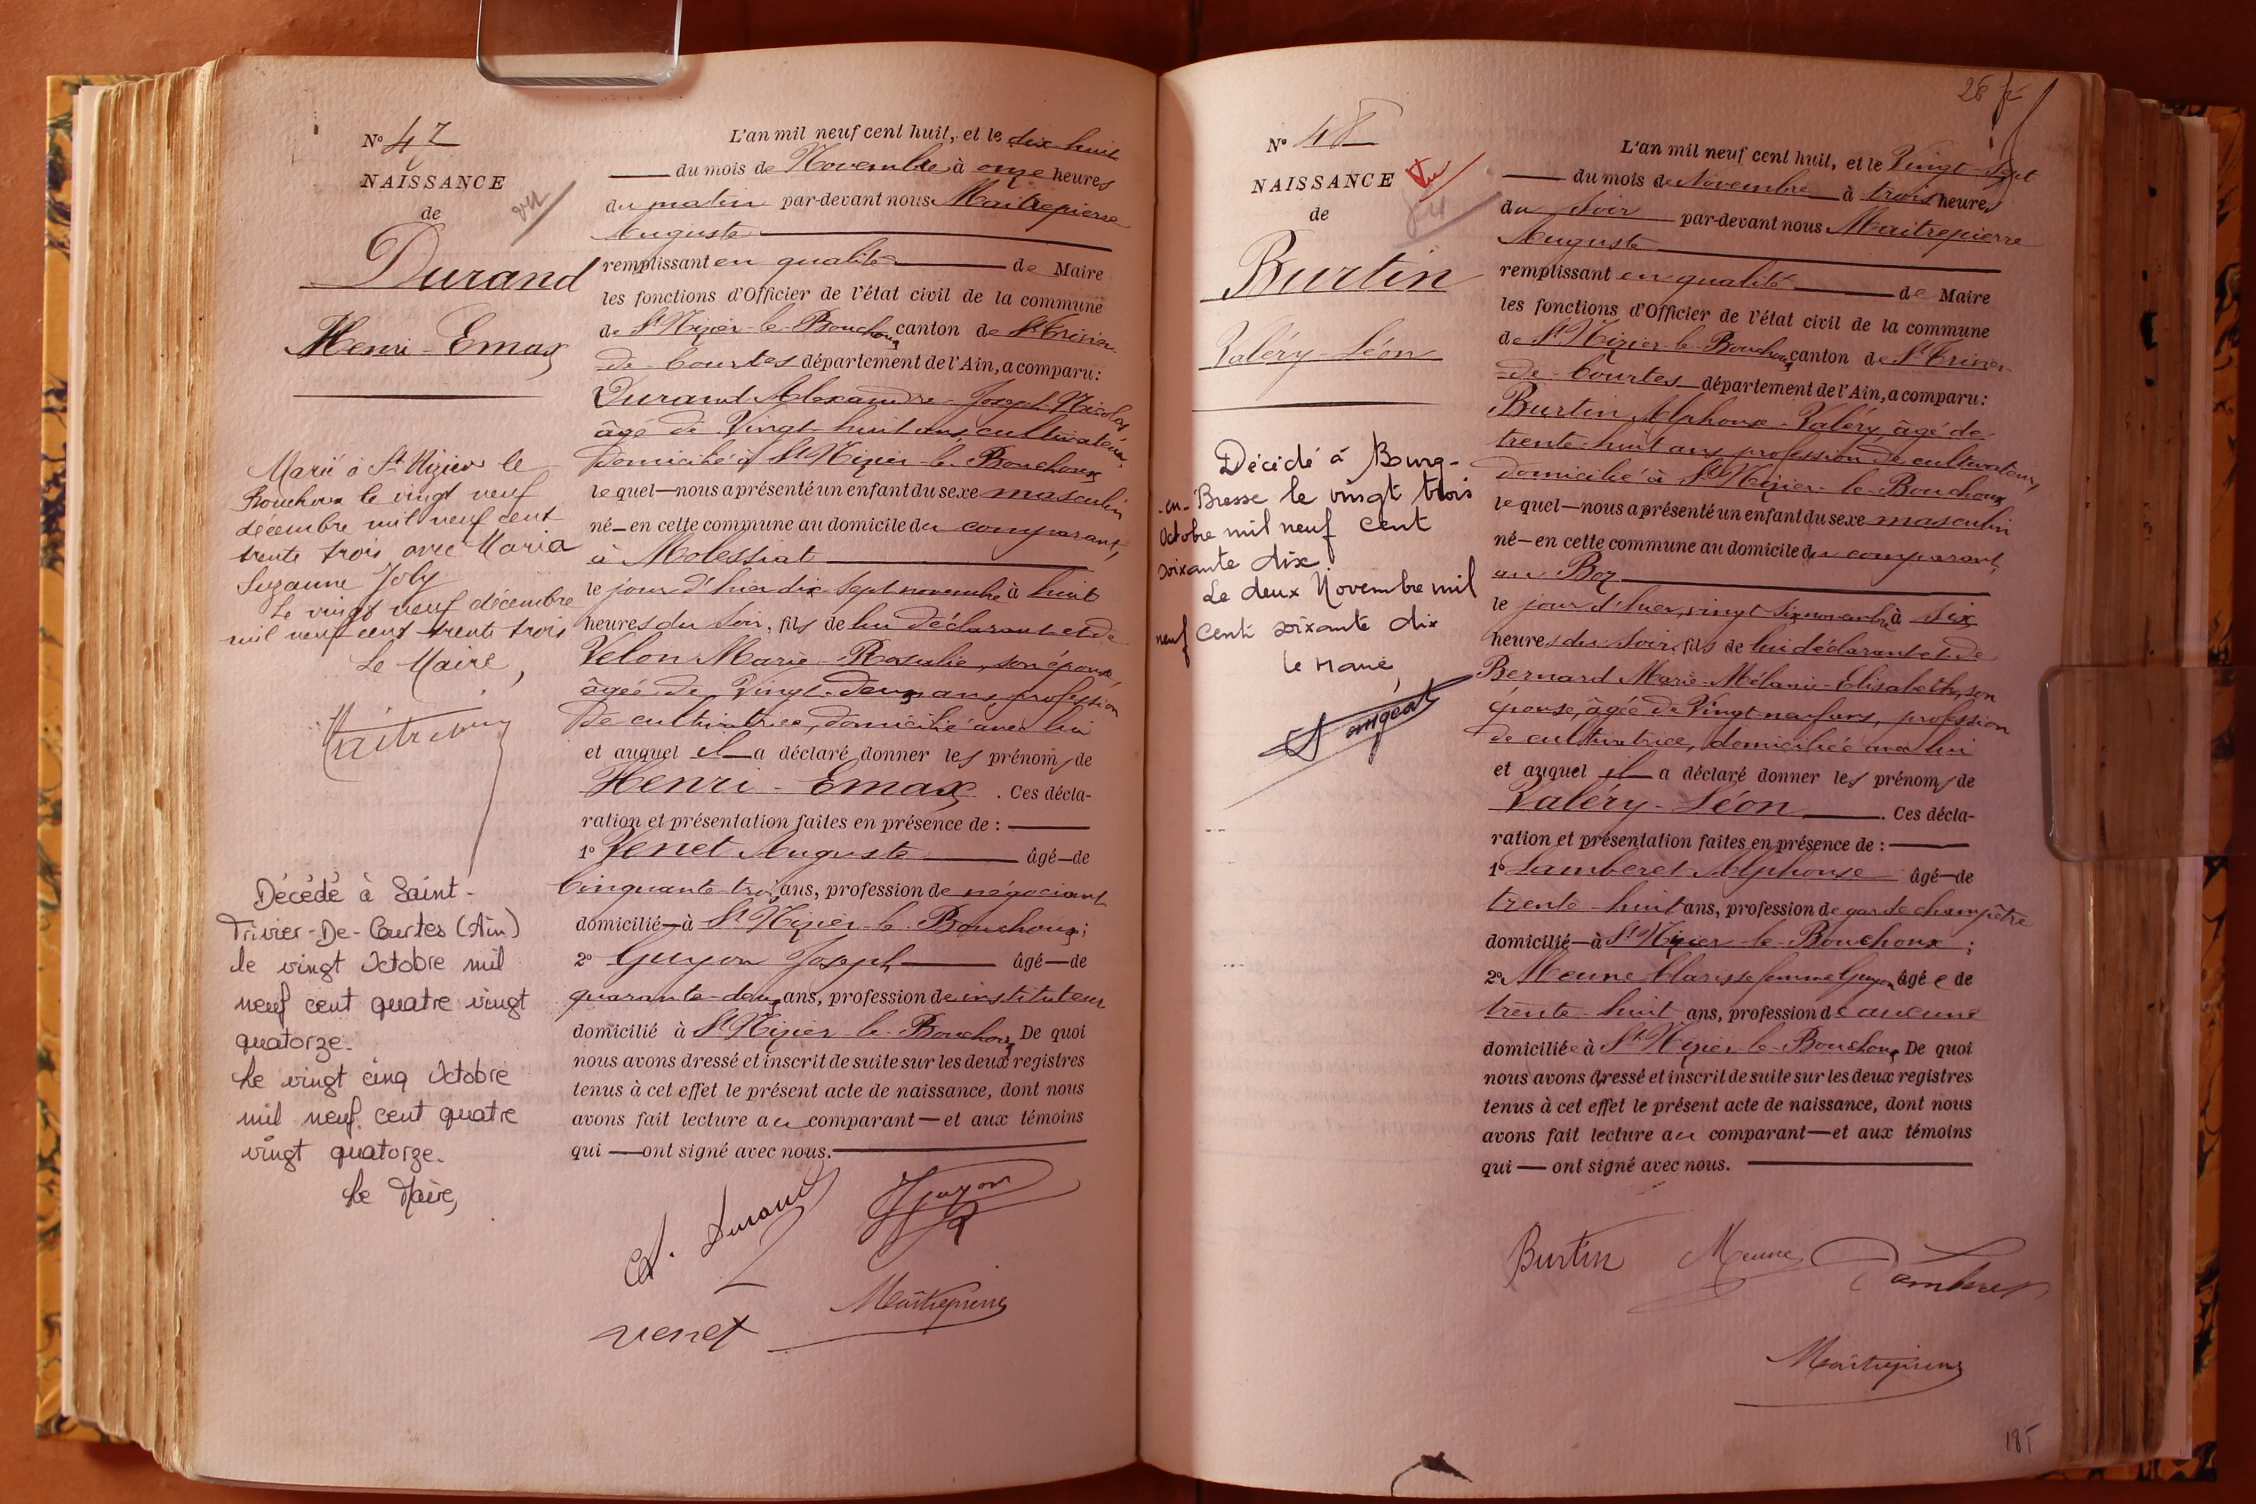 N° 47
NAISSANCE
de
vu
Durand
Henri-Emax
Marié à St Nizier le
Bouchoux le vingt neuf
décembre mil neuf cent
trente trois avec Maria
Suzanne Joly
Le vingt neuf décembre
mil neuf cent trente trois
Le Maire,
Décédé à Saint-
Trivier-De-Courtes (Ain)
le vingt Octobre mil
neuf cent quatre vingt
quatorze.
Le vingt cinq Octobre
mil neuf cent quatre
vingt quatorze.
Le Maire,
L'an mil neuf cent huit, et le dix-huit
du mois de Novembre à onze heures
du matin par-devant nous Maitrepierre
Auguste
remplissant en qualité de Maire
les fonctions d'Officier de l'état civil de la commune
de St Nizier-le-Bouchoux canton de St Trivier-
de-Courtes département de l'Ain, a comparu :
Durand Alexandre-Joseph-Nicolas
âgé de Vingt-huit ans, cultivateur,
domicilié à St Nizier-le-Bouchoux
lequel — nous a présenté un enfant du sexe masculin
né — en cette commune au domicile du comparant,
à Molessiat
le jour d'hier dix-sept novembre à huit
heures du soir, fils de lui déclarant et de
Velon Marie-Rosalie, son épouse,
âgée de Vingt-deux ans, profession
de cultivatrice, domicilié avec lui
et auquel il a déclaré donner les prénoms de
Henri-Emax. Ces décla-
ration et présentation faites en présence de :
1° Venet Auguste âgé — de
Cinquante-trois ans, profession de négociant
domicilié — à St Nizier-le-Bouchoux ;
2° Guyon Joseph âgé — de
quarante-deux ans, profession de instituteur
domicilié à St Nizier-le-Bouchoux De quoi
nous avons dressé et inscrit de suite sur les deux registres
tenus à cet effet le présent acte de naissance, dont nous
avons fait lecture au comparant — et aux témoins
qui — ont signé avec nous.
A. Durand
Guyon
Maitrepierre
Venet
26
N° 48
NAISSANCE
Vu
de
vu
Burtin
Valéry-Léon
Décédé à Bourg-
-en-Bresse le vingt trois
Octobre mil neuf cent
soixante dix
Le deux Novembre mil
neuf cent soixante dix
le Maire,
L'an mil neuf cent huit, et le Vingt-sept
du mois de Novembre à trois heures
du soir par-devant nous Maitrepierre
Auguste
remplissant en qualité de Maire
les fonctions d'Officier de l'état civil de la commune
de St Nizier-le-Bouchoux canton de St Trivier-
de-Courtes département de l'Ain, a comparu :
Burtin Alphonse-Valéry, âgé de
trente-huit ans profession de cultivateur,
domicilié à St Nizier-le-Bouchoux
lequel — nous a présenté un enfant du sexe masculin
né — en cette commune au domicile du comparant,
au Boz
le jour d'hier, vingt-six novembre à six
heures du soir, fils de lui déclarant et de
Bernard Marie-Mélanie-Elisabeth, son
épouse, âgée de Vingt-neuf ans, profession
de cultivatrice, domiciliée avec lui
et auquel il a déclaré donner les prénoms de
Valéry-Léon. Ces décla-
ration et présentation faites en présence de :
1° Lamberet Alphonse âgé — de
trente-huit ans, profession de garde champêtre
domicilié — à St Nizier-le-Bouchoux ;
2° Meune Clarisse femme Guyon âgé e de
trente-huit ans, profession de aucune
domiciliée à St Nizier-le-Bouchoux De quoi
nous avons dressé et inscrit de suite sur les deux registres
tenus à cet effet le présent acte de naissance, dont nous
avons fait lecture au comparant — et aux témoins
qui — ont signé avec nous.
Burtin Meune Lamberet
Maitrepierre
185